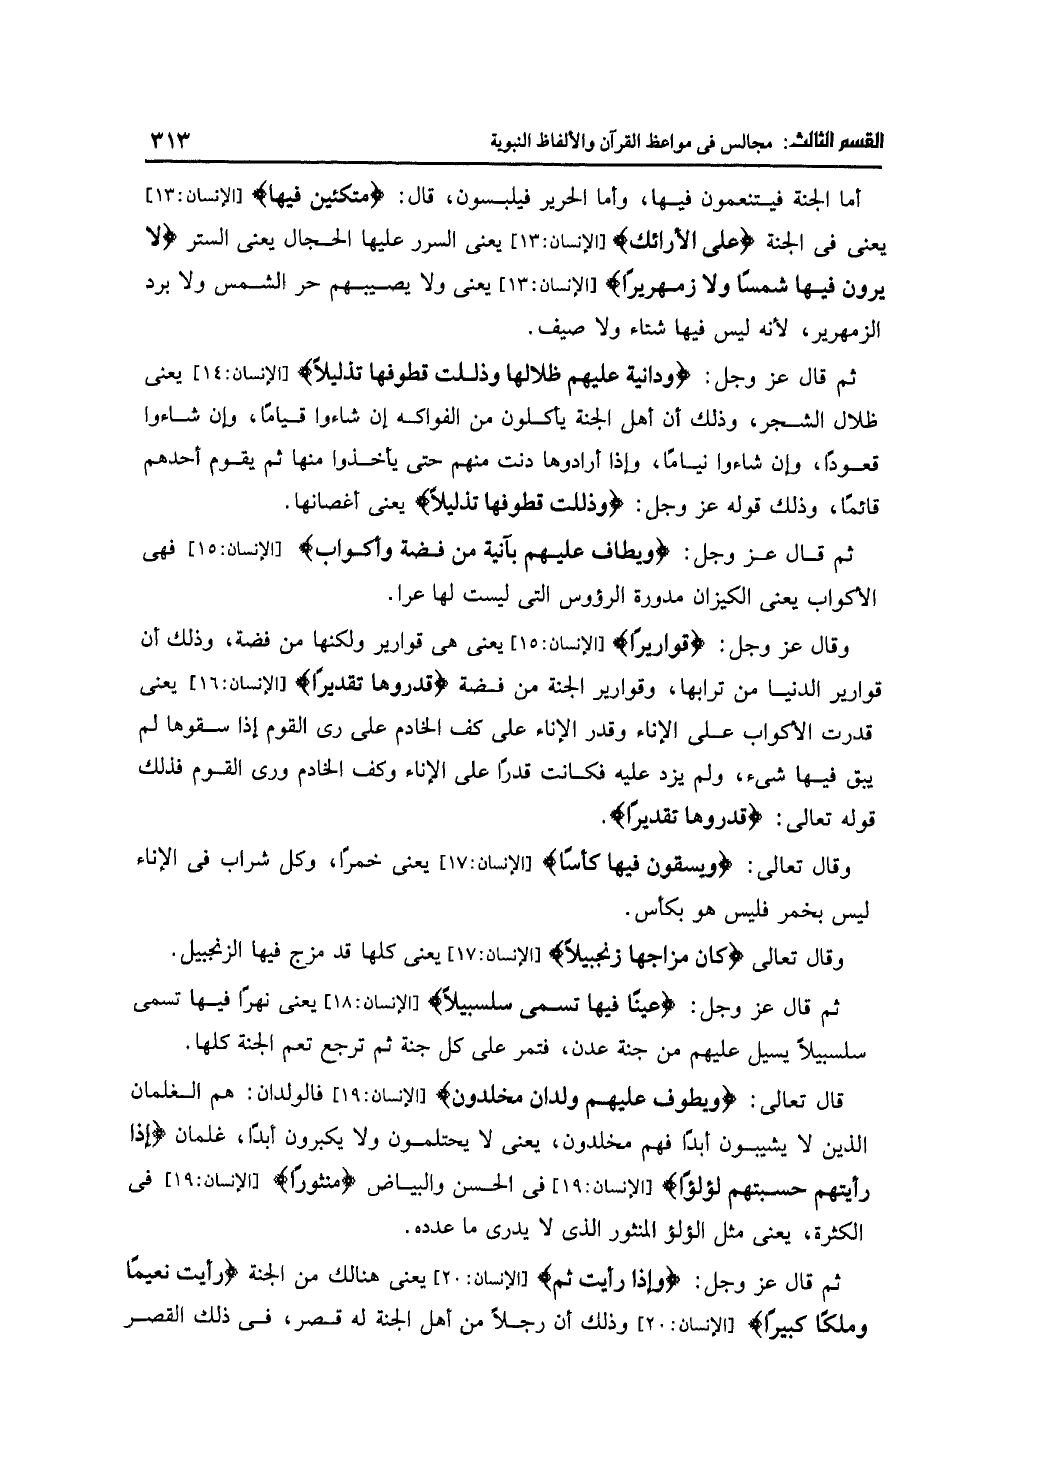 القسم الثالث: مجالس فى مواعظ القرآن والألفاظ النبوية ٣١٣
أما الجنة فيتنعمون فيها، وأما الحرير فيلبسون، قال: ﴿متكئين فيها﴾ [الإنسان:١٣]
يعنى فى الجنة ﴿على الأرائك﴾ [الإنسان:١٣] يعنى السرر عليها الحجال يعنى الستر ﴿لا
يرون فيها شمسًا ولا زمهريرًا﴾ [الإنسان:١٣] يعنى ولا يصيبهم حر الشمس ولا برد
الزمهرير، لأنه ليس فيها شتاء ولا صيف.
ثم قال عز وجل: ﴿ودانية عليهم ظلالها وذللت قطوفها تذليلاً﴾ [الإنسان:١٤] يعنى
ظلال الشجر، وذلك أن أهل الجنة يأكلون من الفواكه إن شاءوا قيامًا، وإن شاءوا
قعودًا، وإن شاءوا نيامًا، وإذا أرادوها دنت منهم حتى يأخذوا منها ثم يقوم أحدهم
قائمًا، وذلك قوله عز وجل: ﴿وذللت قطوفها تذليلاً﴾ يعنى أغصانها.
ثم قال عز وجل: ﴿ويطاف عليهم بآنية من فضة وأكواب﴾ [الإنسان:١٥] فهى
الأكواب يعنى الكيزان مدورة الرؤوس التى ليست لها عرا.
وقال عز وجل: ﴿قواريرًا﴾ [الإنسان:١٥] يعنى هى قوارير ولكنها من فضة، وذلك أن
قوارير الدنيا من ترابها، وقوارير الجنة من فضة ﴿قدروها تقديرًا﴾ [الإنسان:١٦] يعنى
قدرت الأكواب على الإناء وقدر الإناء على كف الخادم على رى القوم إذا سقوها لم
يبق فيها شىء، ولم يزد عليه فكانت قدرًا على الإناء وكف الخادم ورى القوم فذلك
قوله تعالى: ﴿قدروها تقديرًا﴾.
وقال تعالى: ﴿ويسقون فيها كأسًا﴾ [الإنسان:١٧] يعنى خمرًا، وكل شراب فى الإناء
ليس بخمر فليس هو بكأس.
وقال تعالى ﴿كان مزاجها زنجبيلاً﴾ [الإنسان:١٧] يعنى كلها قد مزج فيها الزنجبيل.
ثم قال عز وجل: ﴿عينًا فيها تسمى سلسبيلاً﴾ [الإنسان:١٨] يعنى نهرًا فيها تسمى
سلسبيلاً يسيل عليهم من جنة عدن، فتمر على كل جنة ثم ترجع تعم الجنة كلها.
قال تعالى: ﴿ويطوف عليهم ولدان مخلدون﴾ [الإنسان:١٩] فالولدان: هم الغلمان
الذين لا يشيبون أبدًا فهم مخلدون، يعنى لا يحتلمون ولا يكبرون أبدًا، غلمان ﴿إذا
رأيتهم حسبتهم لؤلؤًا﴾ [الإنسان:١٩] فى الحسن والبياض ﴿منثورًا﴾ [الإنسان:١٩] فى
الكثرة، يعنى مثل الؤلؤ المنثور الذى لا يدرى ما عدده.
ثم قال عز وجل: ﴿وإذا رأيت ثم﴾ [الإنسان:٢٠] يعنى هنالك من الجنة ﴿رأيت نعيمًا
وملكًا كبيرًا﴾ [الإنسان:٢٠] وذلك أن رجلاً من أهل الجنة له قصر، فى ذلك القصر